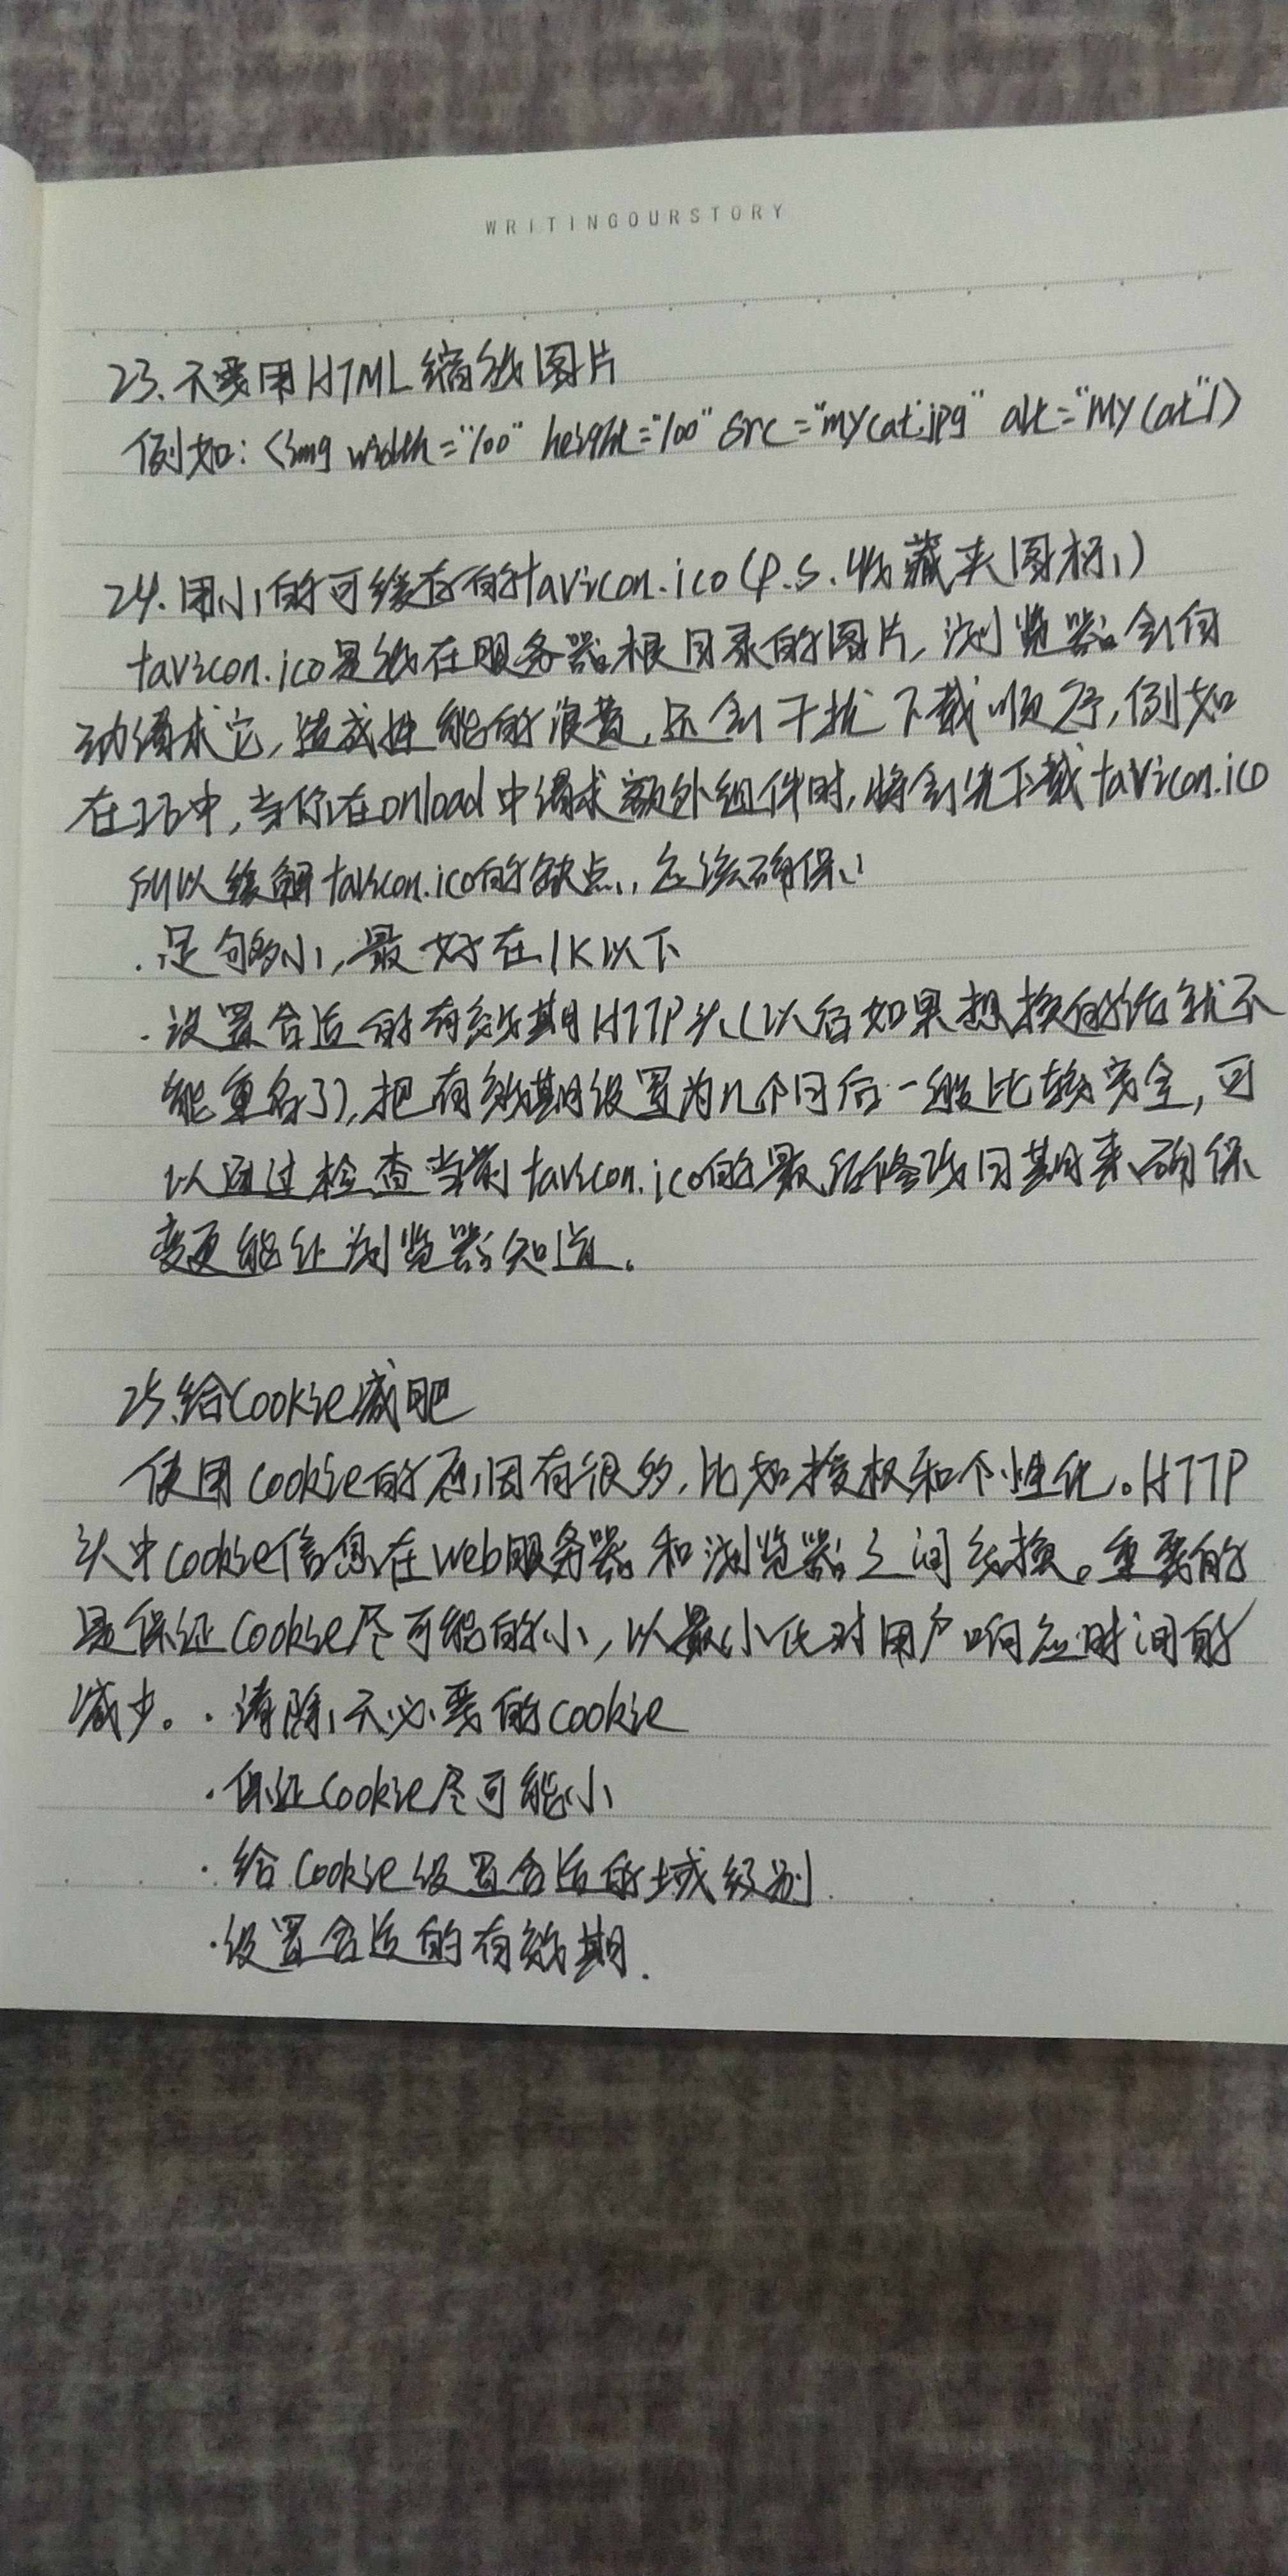 WRITINGOURSTORY
23.不要用HTML缩放图片
例如:<img width="100" height="100" src="mycat.jpg" alt="My Cat"/>
24.用小的可缓存的favicon.ico(P.S.收藏夹图标)
favicon.ico是放在服务器根目录的图片,浏览器会自
动请求它,造成性能的浪费,还会干扰下载顺序,例如
在IE中,当你在onload中请求额外组件时,将会先下载favicon.ico
所以缓解favicon.ico的缺点,应该确保:
·足够小,最好在1K以下
·设置合适的有效期HTTP头(以后如果想换的话就不
能重名了),把有效期设置为几个月后一般比较安全,可
以通过检查当前favicon.ico的最后修改日期来确保
变更能让浏览器知道。
25.给Cookie减肥
使用cookie的原因有很多,比如授权和个性化。HTTP
头中cookie信息在web服务器和浏览器之间交换。重要的
是保证Cookie尽可能的小,以最小化对用户响应时间的
减少。·清除不必要的cookie
·保证Cookie尽可能小
·给Cookie设置合适的域级别
·设置合适的有效期.